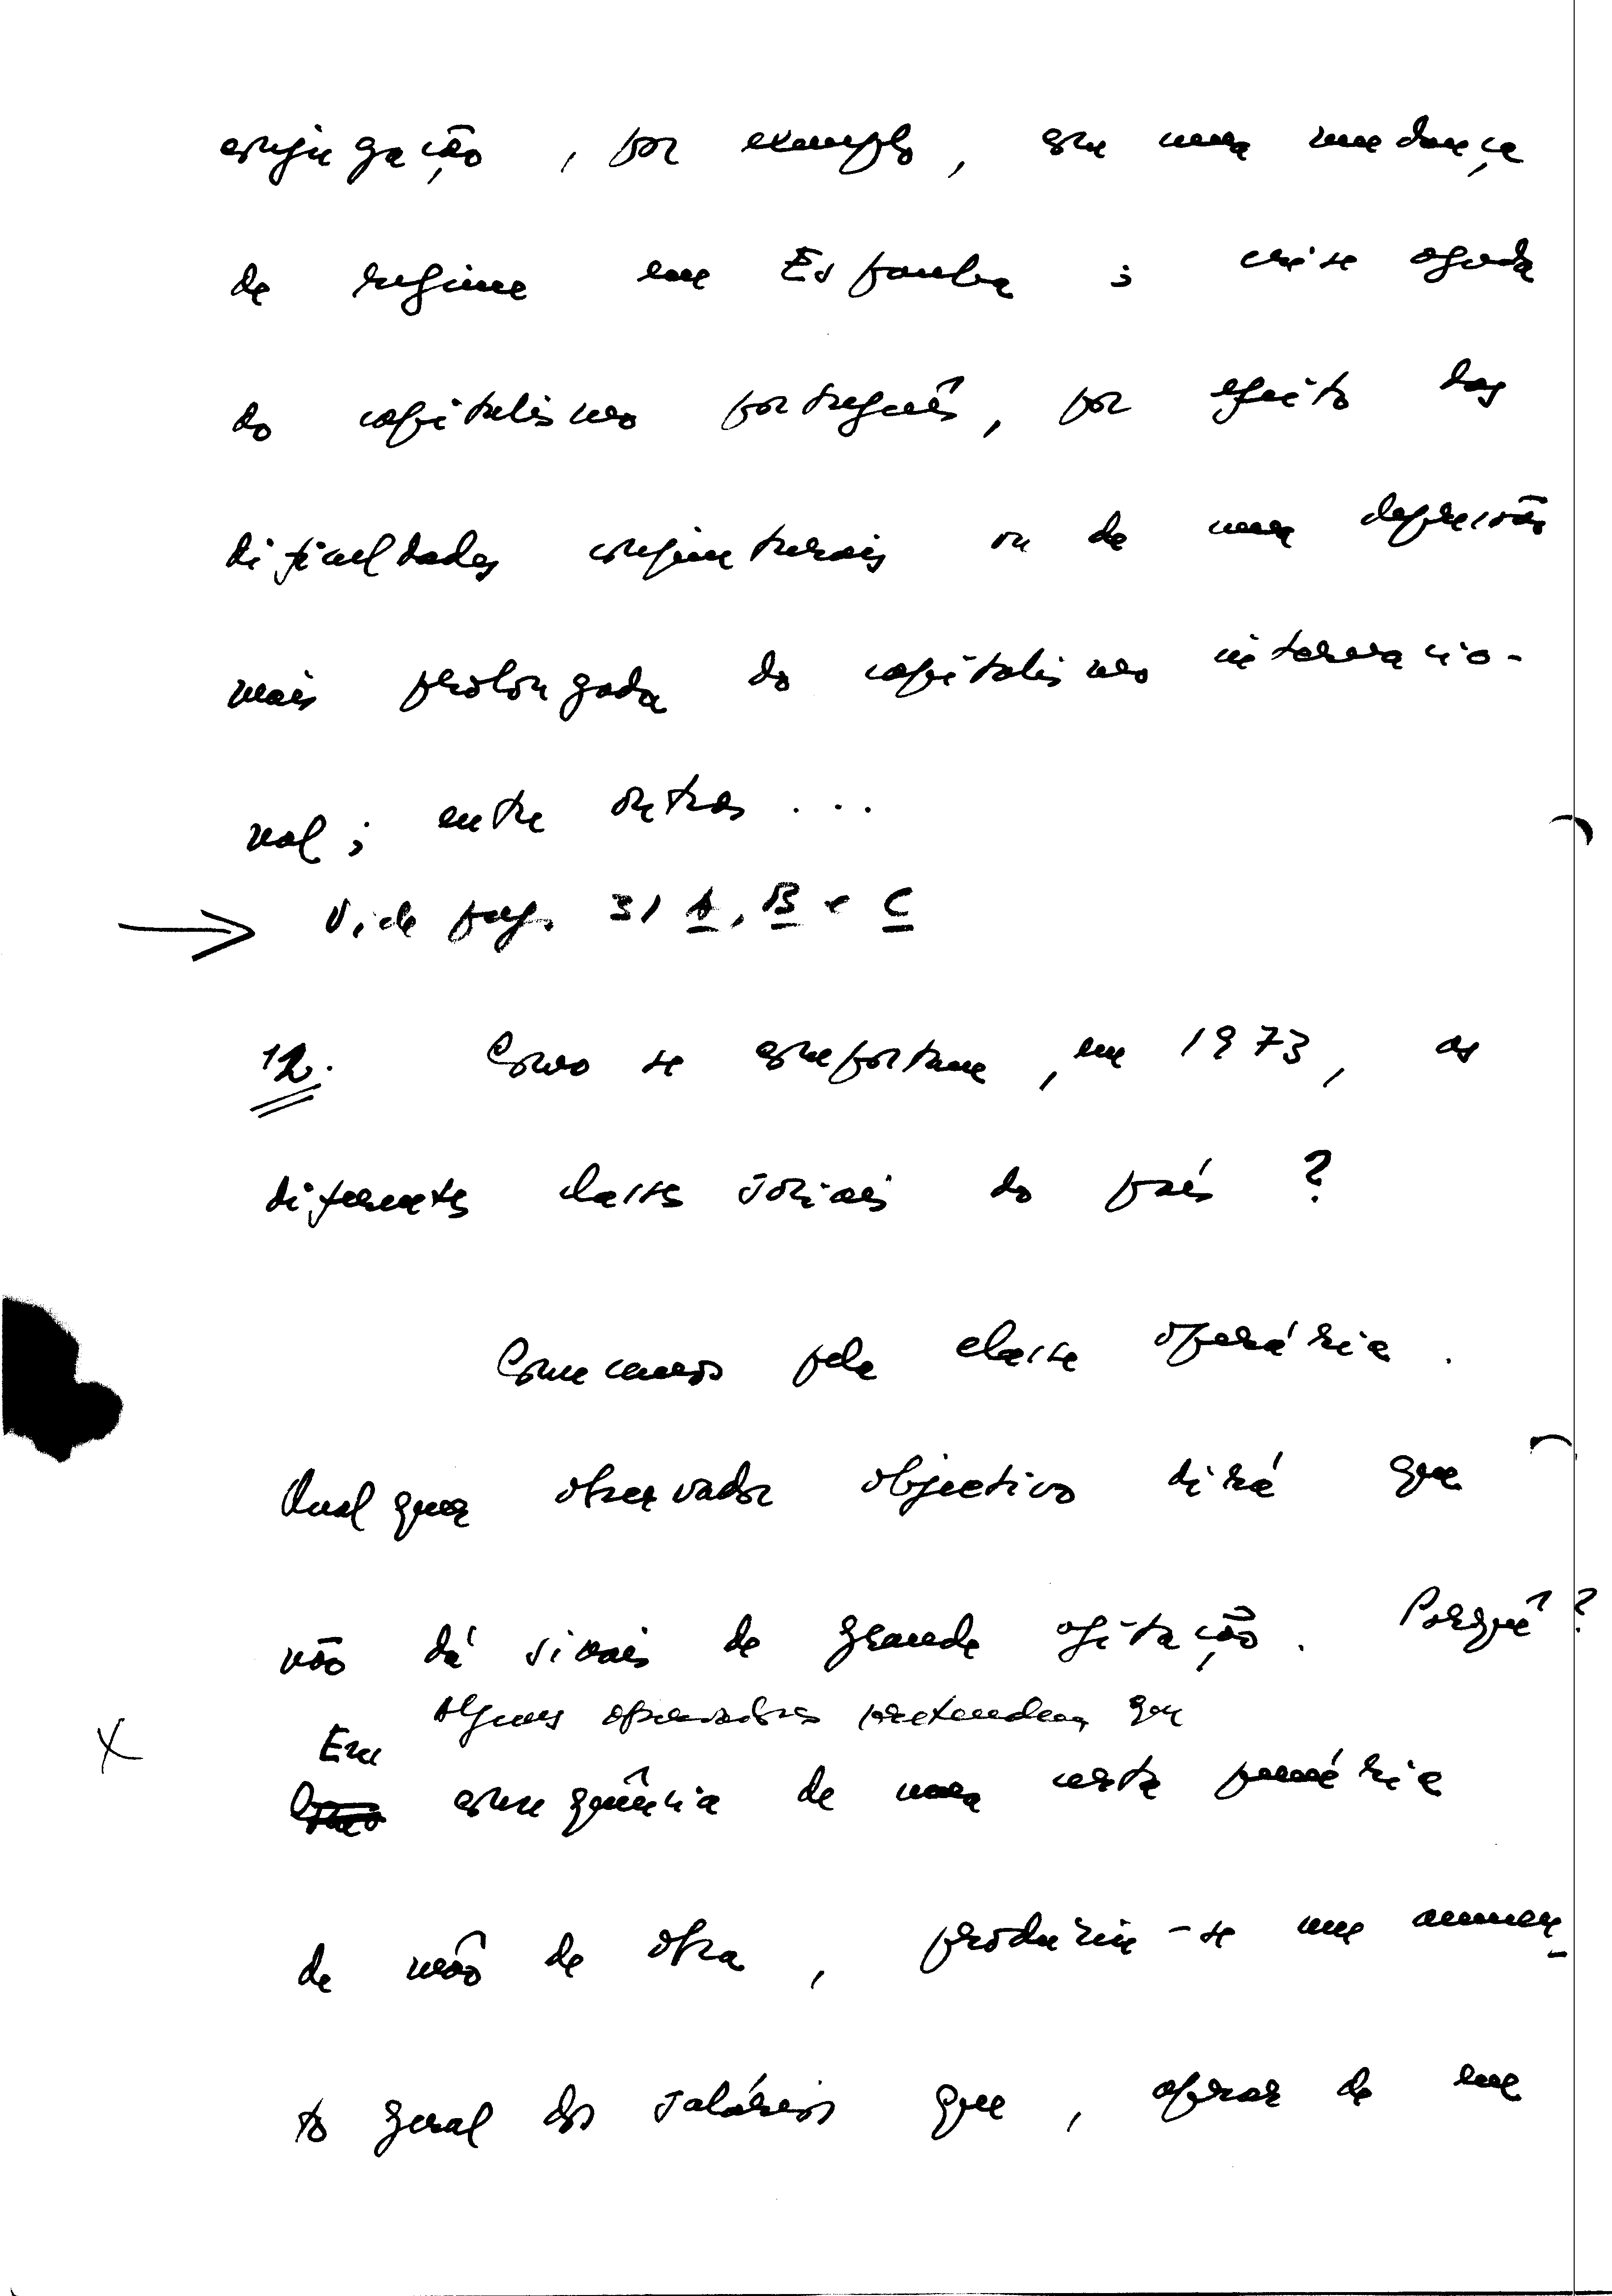 conjugação, por exemplo, com uma mudança
de regime em Espanha; crise aguda
do capitalismo português, por efeito das
dificuldades conjunturais ou de uma depressão
mais prolongada do capitalismo internacio-
nal; entre outras ...
→ Vide pag. 31 A, B e C
12. Como se comportam, em 1973, as
diferentes classes sociais do país?
Comecemos pela classe operária.
Qualquer observador objectivo dirá que
não dá sinais de grande agitação. Porquê?
Alguns observadores pretendem que
X Em
consequência de uma certa penúria
de mão de obra, produziu-se um aumen-
to geral dos salários que, apesar de em